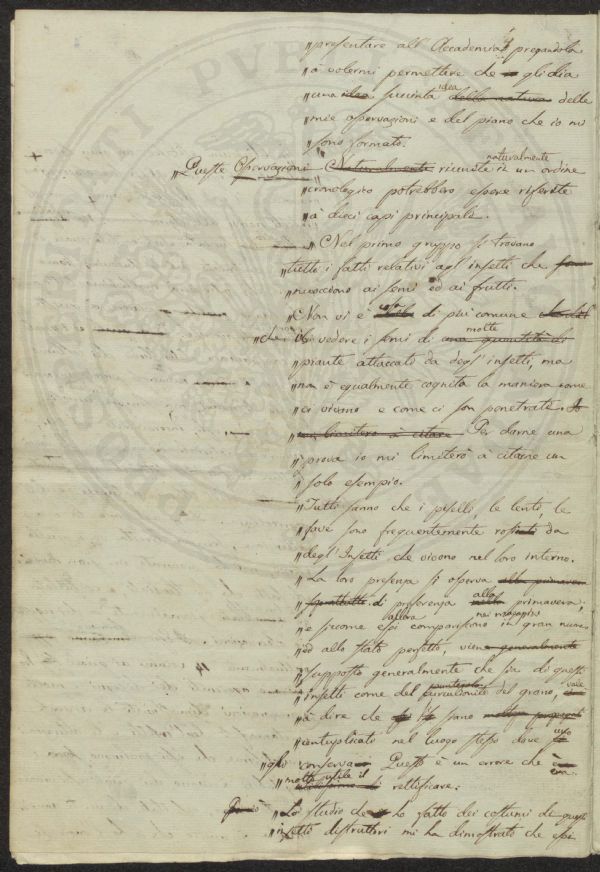 "presentare all'Accademia pregandola
"à volermi permettere che gli dia
"una idea succinta idea della natura delle
"mie osservazioni e del piano che io mi
"sono formato.
"Queste Osservazioni Naturalmente riunite naturalmente in un ordine
"cronologico potrebbero essere riferite
"à dieci capi principali.
"Nel primo gruppo si trovano
"tutti i fatti relativi agl'insetti che
"nuocciono ai semi ed ai frutti.
"Non vi è di più comune
"che il vedere i semi di molte una quantità di
"piante attaccati da degl'insetti, ma
"non è egualmente cognita la maniera come
"ci vivono e come ci son penetrati. Io
"mi limiterò à citare Per darne una
"prova io mi limiterò à citarne un
"solo esempio.
"Tutti sanno che i piselli, le lenti, le
"fave sono frequentemente rosi da
"degl'Insetti che vivono nel loro interno.
"La loro presenza si osserva alla primavera
"soprattutto di preferenza alla nella primavera;
"e siccome essi compariscono allora in gran numero nei magazzini
"ed allo stato perfetto, viene generalmente
"supposto generalmente che sia di questi
"insetti come del punteruolo del grano, vale
"à dire che si sono
"moltiplicati nel luogo stesso dove
"gli conserva Questo è un errore che è
"molto utile il di rettificare.
"Lo studio che ho fatto dei costumi di questi
"insetti distruttori mi ha dimostrato che essi